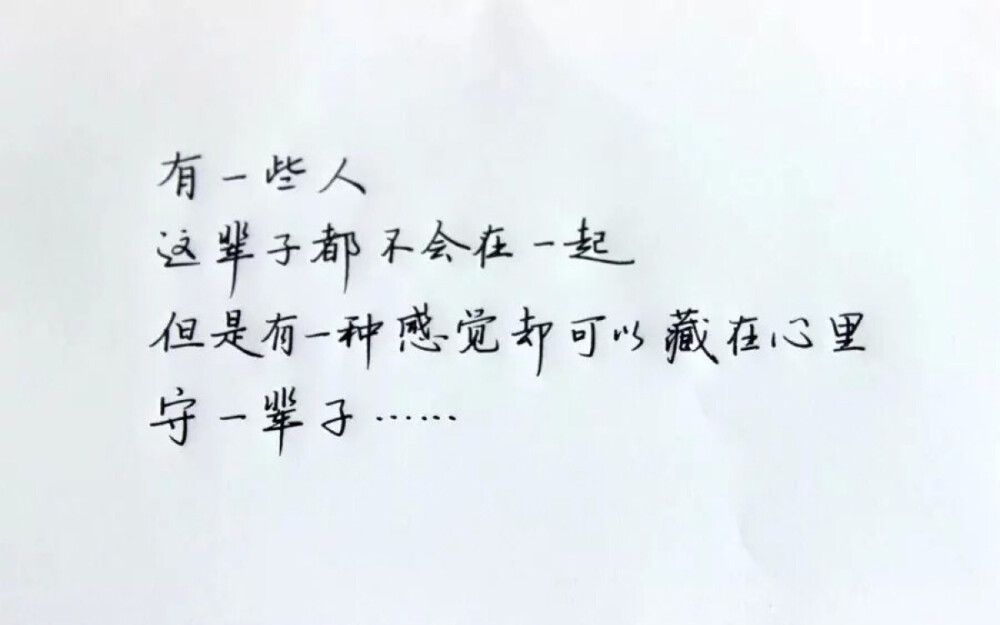 有一些人
这辈子都不会在一起
但是有一种感觉却可以藏在心里
守一辈子……